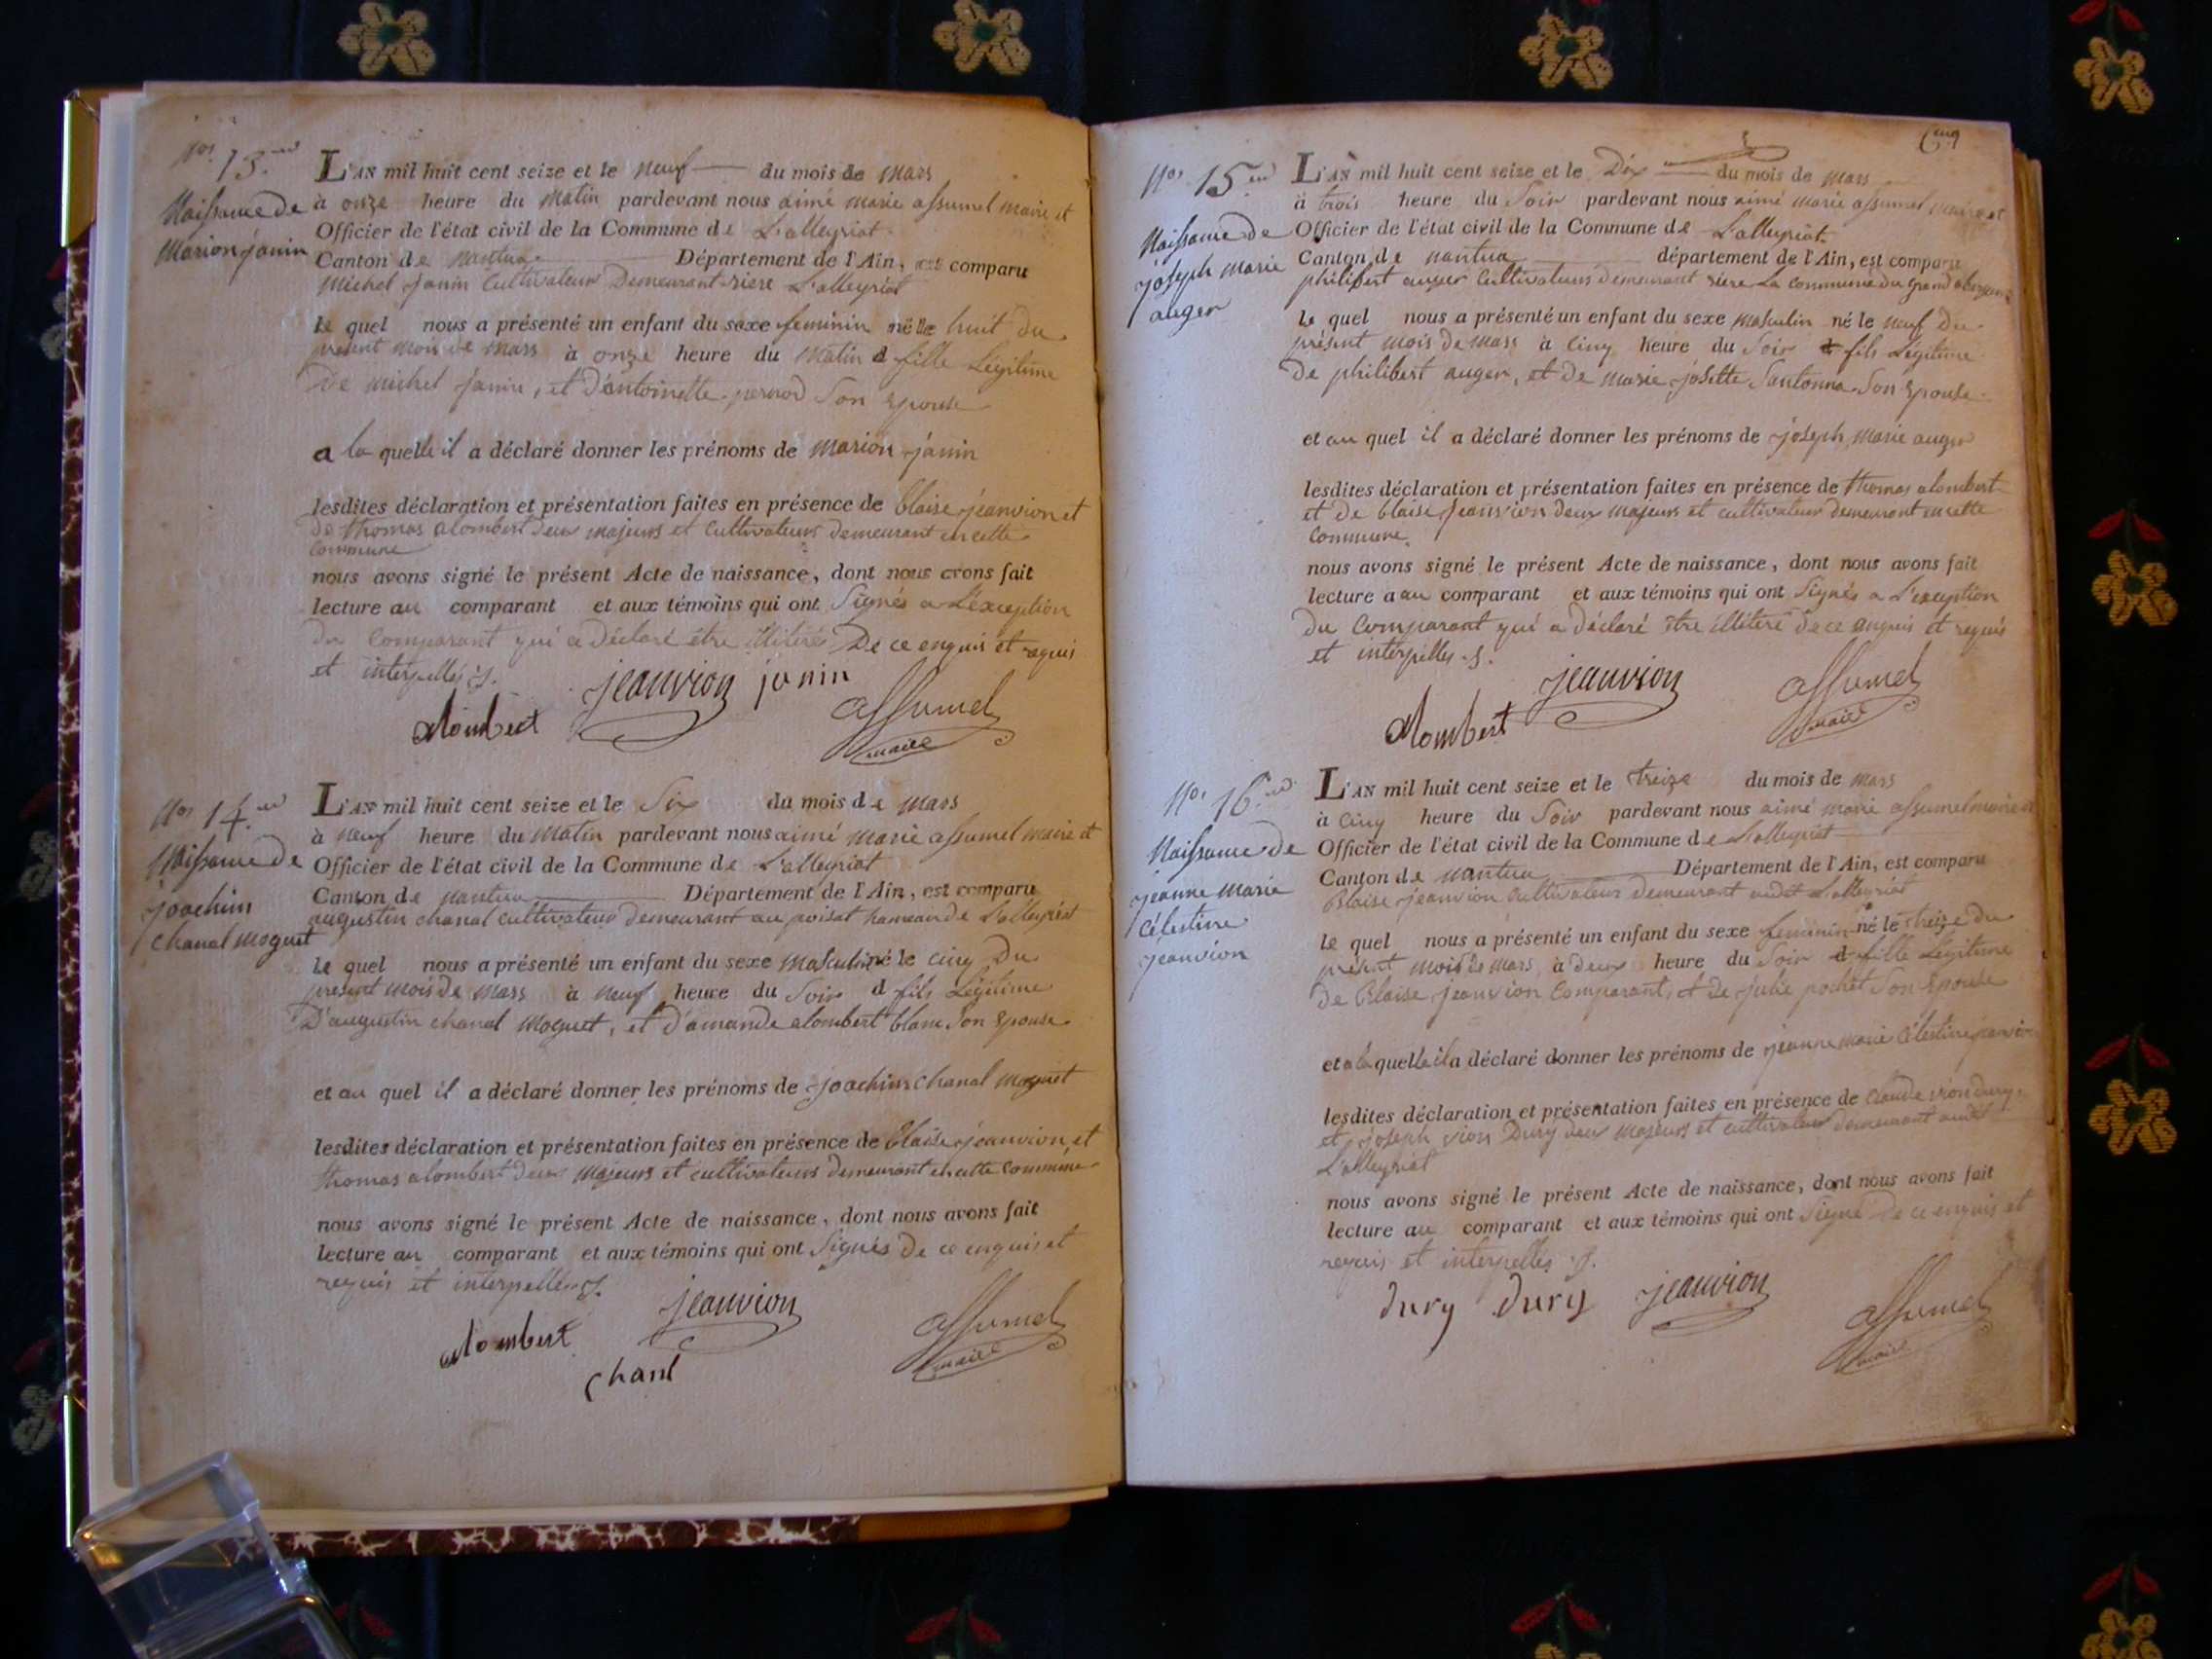 Nos 13.
Naissance de
Marion janin
L'AN mil huit cent seize et le neuf du mois de mars
à onze heure du matin pardevant nous aimé marie assumel maire et
Officier de l'état civil de la Commune de L'alleyriat
Canton de nantua Département de l'Ain, est comparu
Michel janin Cultivateur Demeurant riere L'alleyriat
le quel nous a présenté un enfant du sexe feminin né le huit du
présent mois de mars à onze heure du matin d fille Légitime
De michel janin, et d'antoinette pernod Son Epouse
a la quelle il a déclaré donner les prénoms de marion janin
lesdites déclaration et présentation faites en présence de blaise jeanvion et
de thomas alombert deux majeurs et cultivateurs demeurant en cette
commune
nous avons signé le présent Acte de naissance, dont nous avons fait
lecture au comparant et aux témoins qui ont Signés a L'exception
du Comparant qui a déclaré être illitéré De ce enquis et requis
et interpellés .s.
alombert jeanvion janin assumel
maire
Nos 14.
Naissance de
joachim
chanal moguet
L'AN mil huit cent seize et le Six du mois de mars
à neuf heure du matin pardevant nous aimé marie assumel maire et
Officier de l'état civil de la Commune de L'alleyriat
Canton de nantua Département de l'Ain, est comparu
augustin chanal cultivateur demeurant au poisat hameau de L'alleyriat
le quel nous a présenté un enfant du sexe masculin né le cinq du
présent mois de mars à neuf heure du Soir d fils Légitime
D'augustin chanal moguet, et d'amande alombert blanc Son Epouse
et au quel il a déclaré donner les prénoms de joachim chanal moguet
lesdites déclaration et présentation faites en présence de blaise jeanvion, et
thomas alombert deux majeurs et cultivateurs demeurant en cette commune
nous avons signé le présent Acte de naissance, dont nous avons fait
lecture au comparant et aux témoins qui ont Signés De ce enquis et
requis et interpellés .s.
alombert jeanvion assumel
chanl maire
Cinq
Nos 15
Naissance de
joseph marie
auger
L'AN mil huit cent seize et le Dix du mois de mars
à trois heure du Soir pardevant nous aimé marie assumel maire et
Officier de l'état civil de la Commune de L'alleyriat
Canton de nantua département de l'Ain, est comparu
philibert auger cultivateur demeurant riere La commune du grand abergement
le quel nous a présenté un enfant du sexe masculin né le neuf du
présent mois de mars à cinq heure du Soir d fils Légitime
De philibert auger, et de marie josette Santonna Son Epouse
et au quel il a déclaré donner les prénoms de joseph marie auger
lesdites déclaration et présentation faites en présence de thomas alombert
et de blaise jeanvion deux majeurs et cultivateurs demeurant en cette
commune.
nous avons signé le présent Acte de naissance, dont nous avons fait
lecture a au comparant et aux témoins qui ont Signés a L'exception
du Comparant qui a déclaré être illitéré de ce enquis et requis
et interpellés .s.
alombert jeanvion assumel
maire
Nos 16.
Naissance de
jeanne marie
célestine
jeanvion
L'AN mil huit cent seize et le treize du mois de mars
à cinq heure du Soir pardevant nous aimé marie assumel maire et
Officier de l'état civil de la Commune de L'alleyriat
Canton de nantua Département de l'Ain, est comparu
Blaise jeanvion cultivateur demeurant audit L'alleyriat
le quel nous a présenté un enfant du sexe feminin né le treize du
présent mois de mars à deux heure du Soir d fille Légitime
de Blaise jeanvion Comparant, et de julie pochet Son Epouse
et a la quelle il a déclaré donner les prénoms de jeanne marie célestine jeanvion
lesdites déclaration et présentation faites en présence de claude vion dury,
et joseph vion Dury deux majeurs et cultivateurs demeurant audit
L'alleyriat
nous avons signé le présent Acte de naissance, dont nous avons fait
lecture au comparant et aux témoins qui ont Signé De ce enquis et
requis et interpellés .s.
dury dury jeanvion assumel
maire